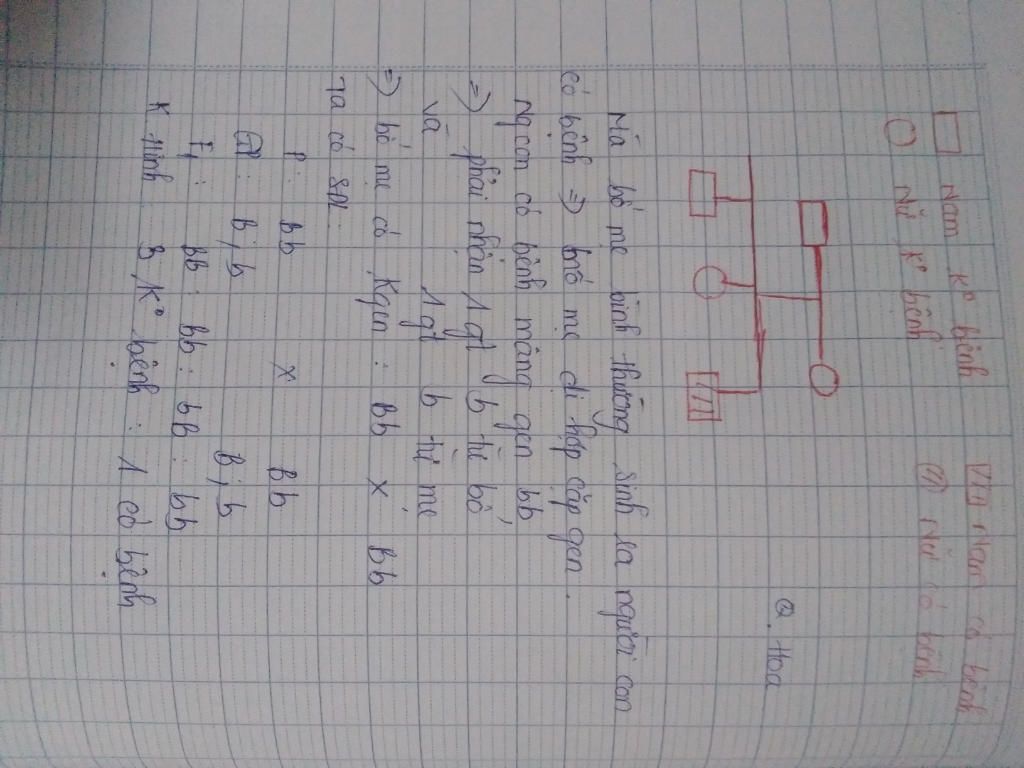 Nam K° bệnh Nam có bệnh
Nữ K° bệnh Nữ có bệnh
Q. Hoa
Mà bố mẹ bình thường sinh ra người con
có bệnh => bố mẹ dị hợp cặp gen.
Ng con có bệnh mang gen bb
=> phải nhận 1 gt b từ bố
và 1 gt b từ mẹ
=> bố mẹ có Kgen : Bb x Bb
Ta có SĐL:
P: Bb x Bb
GP: B; b B; b
F1: BB: Bb: Bb: bb
K Hình 3 K° bệnh : 1 có bệnh